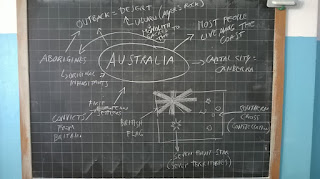 OUTBACK = DESERT
ULURU (AYERS ROCK)
MOST PEOPLE
LIVE ALONG THE
COAST
ABORIGINES
ORIGINAL
INHABITANTS
AUSTRALIA
CAPITAL CITY:
CANBERRA
CONVICTS
FROM
BRITAIN
BRITISH
FLAG
SOUTHERN
CROSS
(CONSTELLATION)
SEVEN POINT-STAR
(SEVEN TERRITORIES)